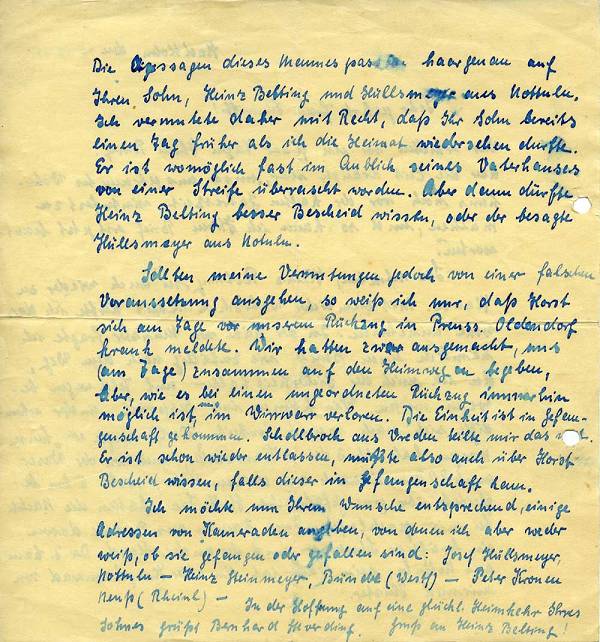 Die Aussagen dieses Mannes passen haargenau auf
Ihren Sohn, Heinz Belting und Hüllsmeyer aus Nottuln.
Ich vermutete daher mit Recht, daß Ihr Sohn bereits
einen Tag früher als ich die Heimat wiedersehen durfte.
Er ist womöglich fast im Anblick seines Vaterhauses
von einer Streife überrascht worden. Aber dann dürfte
Heinz Belting besser Bescheid wissen, oder der besagte
Hüllsmeyer aus Notuln.
Sollten meine Vermutungen jedoch von einer falschen
Voraussetzung ausgehen, so weiß ich nur, daß Horst
sich am Tage vor unserem Rückzug in Preuss. Oldendorf
krank meldete. Wir hatten zwar ausgemacht, uns
(am Tage) zusammen auf den Heimweg zu begeben,
Aber, wie es bei einem ungeordneten Rückzug immerhin
möglich ist, uns im Wirrwarr verloren. Die Einheit ist in Gefan-
genschaft gekommen. Schollbrock aus Vreden teilte mir das mit.
Er ist schon wieder entlassen, müßte also auch über Horst
Bescheid wissen, falls dieser in Gefangenschaft kam.
Ich möchte nun Ihrem Wunsche entsprechend, einige
Adressen von Kameraden angeben, von denen ich aber weder
weiß, ob sie gefangen oder gefallen sind: Josef Hüllsmeyer,
Nottuln – Heinz Steinmeyer, Bünde (Westf) – Peter Kronen
Neuß (Rheinl) – In der Hoffnung auf eine glückl. Heimkehr Ihres
Sohnes grüßt Bernhard Gruß an Heinz Belting!